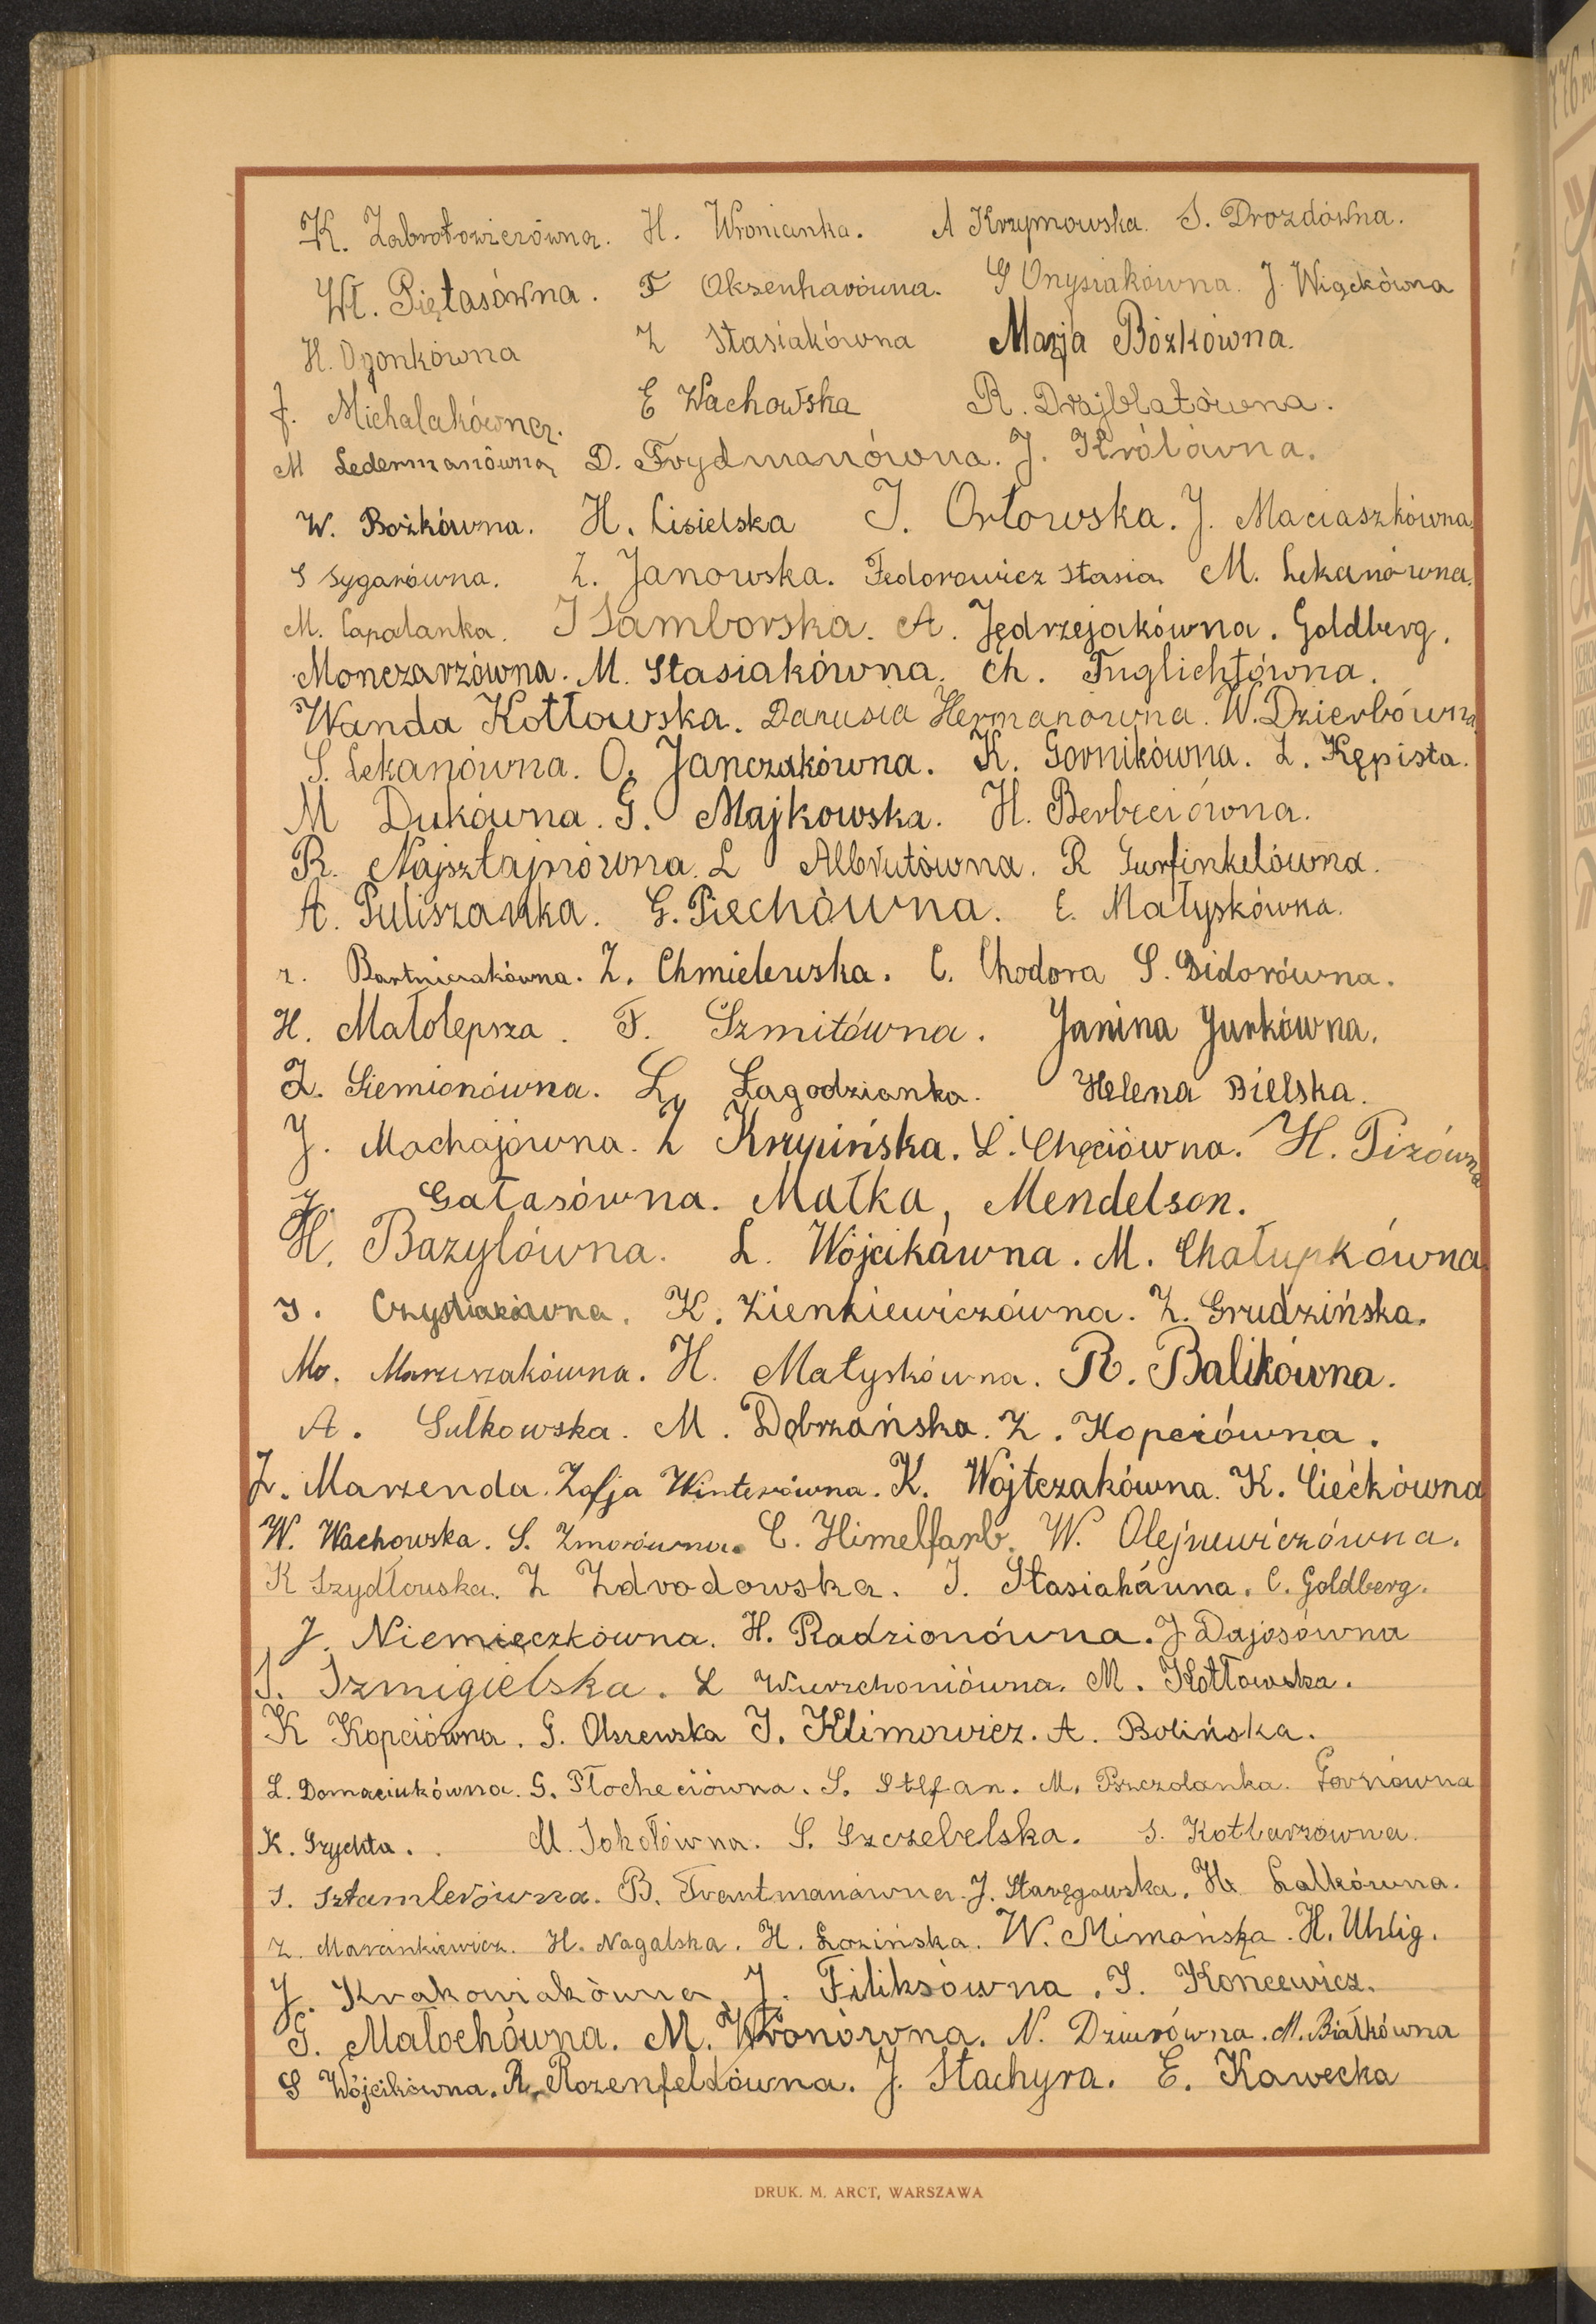 K. Zabrotowiczówna. H. Wronianka. A Krzymowska. S. Drozdówna.
Wł. Piętasówna. F Oksenharówna. G Onysiakówna. J. Wiąckówna
H. Ogonkówna Z Stasiakówna Marja Bóżkówna.
J. Michalakówna. E Wachowska R. Drajblatówna.
M Ledermanówna D. Frydmanówna. J. Królówna.
W. Bożkówna. H. Cisielska J. Orłowska. J. Maciaszkówna.
S Sygarówna. Z. Janowska. Fedorowicz Stasia M. Lekanówna.
M. Capalanka. J Samborska. A. Jędrzejakówna. Goldberg.
Monczarzówna. M. Stasiakówna. Ch. Fuglichtówna.
Wanda Kotłowska. Danusia Hermanówna. W. Dzierbówna
S. Lekanówna. O. Janczakówna. K. Gornikówna. L. Kępista.
M Dukówna. G. Majkowska. H. Berbeciówna.
R. Najsztajnówna. L Albrutówna. R Gurfinkelówna.
A. Puliszanka. G. Piechówna. E. Małyskówna.
r. Bartniczakówna. Z. Chmielewska. C. Chodora S. Sidorówna.
H. Małolepsza. F. Szmitówna. Janina Jurkówna.
Z. Siemionówna. Ł. Łagodzianka. Helena Bielska.
J. Machajówna. Z Krzypińska. L. Chęciówna. H. Pizówna
J. Gałasówna. Małka, Mendelson.
H. Bazylówna. L. Wójcikówna. M. Chałupkówna
J. Czystiakówna. K. Zienkiewiczówna. Z. Grudzińska.
Ma. Maruszakówna. H. Małyskówna. R. Balikówna.
A. Sulkowska. M. Dobrzańska. Z. Kopciówna.
Z. Marzenda. Zofja Winterówna. K. Wojtczakówna. K. Ciećkówna
W. Wachowska. S. Zmorówna. C. Himelfarb. W. Olejniewiczówna.
K Szydłowska. Z Zdrodowska. J. Stasiakówna. C. Goldberg.
J. Niemięczkówna. H. Radzionówna. J. Dajosówna
S. Szmigielska. L Wierzchoniówna. M. Kotłowska.
K Kopciówna. G. Olszewska J. Klimowicz. A. Bolińska.
L. Domaciukówna. G. Płocheciówna. S. Stefan. M. Pszczolanka. Gornówna
K. Grychta. M. Sokołówna. S. Szczebelska. S. Kotlarzówna.
S. Sztamlerówna. B. Trautmanówna. J. Staręgowska. H. Lalkówna.
Z. Marcinkiewicz. H. Nagalska. H. Łozińska. W. Mimońska. H. Uhlig.
J. Krakowiakówna. J. Filiksówna. J. Kończewicz.
G. Małochówna. M. Wronówna. N. Dziurówna. M. Białkówna
S Wójcikówna. R. Rozenfeldówna. J. Stachyra. E. Kawecka
DRUK. M. ARCT, WARSZAWA